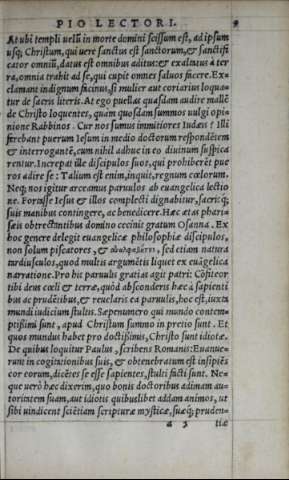 PIO LECTORI.
At ubi templi uelũ in morte domini scissum est, ad ipsum
usq; Christum, qui uere sanctus est sanctorum, & sanctifi
cator omniũ, datus est omnibus aditus: & exaltatus à ter
ra, omnia trahit ad se, qui cupit omnes saluos facere. Ex=
clamant indignum facinus, si mulier aut coriarius loqua=
tur de sacris literis. At ego puellas quasdam audire mallẽ
de Christo loquentes, quam quosdam summos uulgi opi=
nione Rabbinos. Cur nos sumus immitiores Iudæis? Illi
ferebant puerum Iesum in medio doctorum respondẽtem
& interrogantẽ, cum nihil adhuc in eo diuinum suspica
rentur. Increpat ille discipulos suos, qui prohiberẽt pue
ros adire se: Talium est enim, inquit, regnum cœlorum.
Neq; nos igitur arceamus paruulos ab euangelica lectio
ne. Fortasse Iesus & illos complecti dignabitur, sacriq;
suis manibus contingere, ac benedicere. Hæc ætas phari=
sæis obtrectantibus domino cecinit gratum Osanna. Ex
hoc genere delegit euangelicæ philosophiæ discipulos,
non solum piscatores, & sed etiam natura
tardiusculos, quod multis argumẽtis liquet ex euãgelica
narratione. Pro his paruulis gratias agit patri: Cõfiteor
tibi deus cœli & terræ, quòd absconderis hæc à sapienti
bus ac prudẽtibus, & reuelaris ea paruulis, hoc est, iuxta
mundi iudicium stultis. Sæpenumero qui mundo contem=
ptißimi sunt, apud Christum summo in precio sunt. Et
quos mundus habet pro doctißimis, Christo sunt idiotæ.
De quibus loquitur Paulus, scribens Romanis: Euanue=
runt in cogitationibus suis, & obtenebratum est insipiẽs
cor eorum, dicẽtes se esse sapientes, stulti facti sunt. Ne=
que uerò hæc dixerim, quo bonis doctoribus adimam au=
toritatem suam, aut idiotis quibuslibet addam animos, ut
sibi uindicent sciẽtiam scripturæ mysticæ, suæq; pruden=
a 3 tiæ